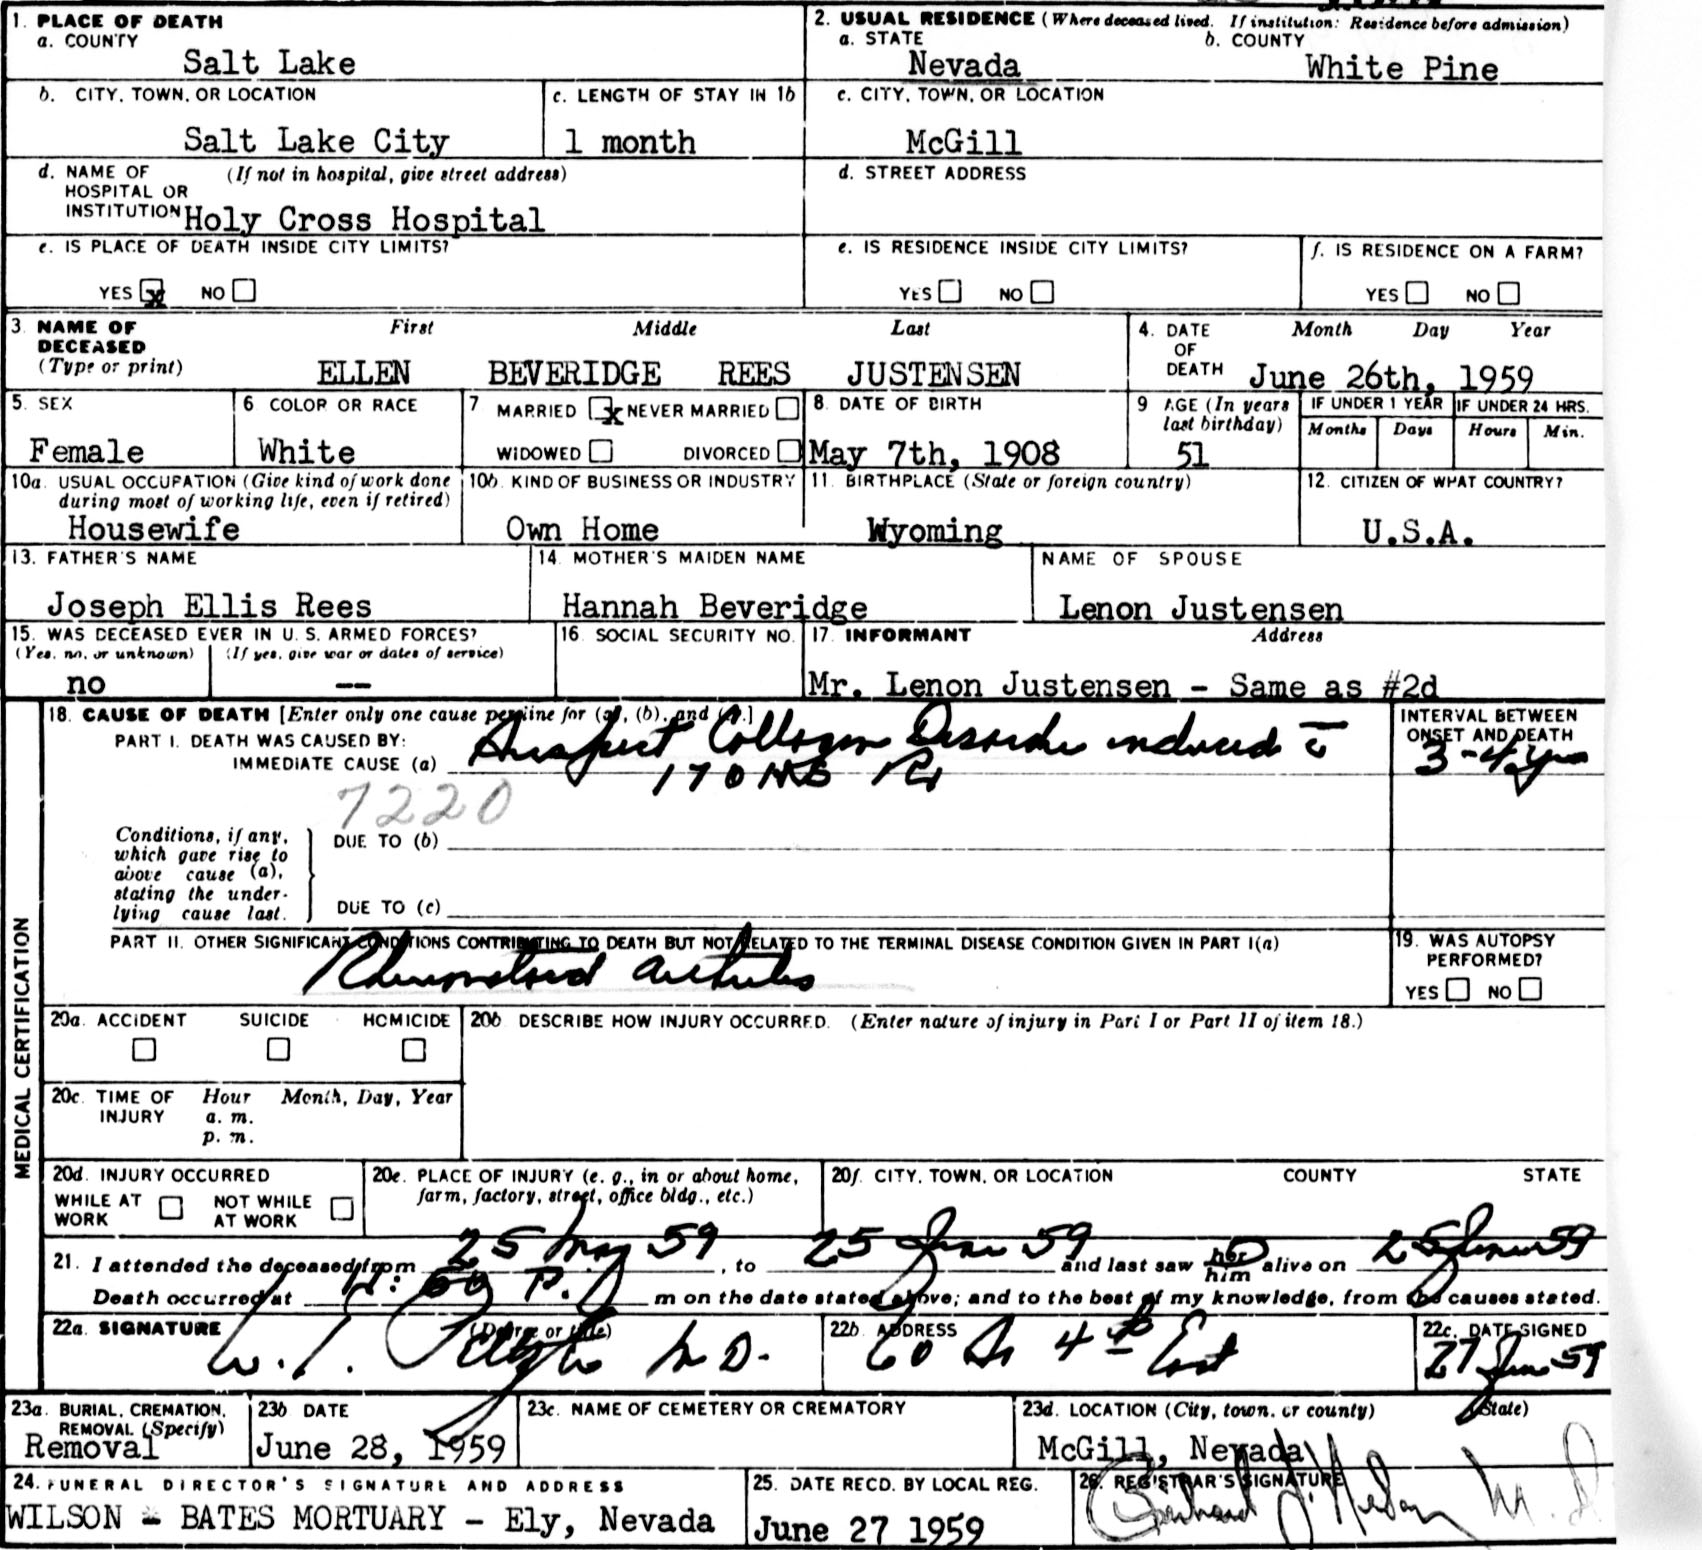 1. PLACE OF DEATH
a. COUNTY
Salt Lake
2. USUAL RESIDENCE (Where deceased lived. If institution: Residence before admission)
a. STATE
Nevada
b. COUNTY
White Pine
b. CITY, TOWN, OR LOCATION
Salt Lake City
c. LENGTH OF STAY IN 1b
1 month
c. CITY, TOWN, OR LOCATION
McGill
d. NAME OF (If not in hospital, give street address)
HOSPITAL OR
INSTITUTION Holy Cross Hospital
d. STREET ADDRESS
e. IS PLACE OF DEATH INSIDE CITY LIMITS?
YES x NO
e. IS RESIDENCE INSIDE CITY LIMITS?
YES NO
f. IS RESIDENCE ON A FARM?
YES NO
3. NAME OF DECEASED
(Type or print)
First Middle Last
ELLEN BEVERIDGE REES JUSTENSEN
4. DATE OF DEATH
Month Day Year
June 26th, 1959
5. SEX
Female
6 COLOR OR RACE
White
7 MARRIED x NEVER MARRIED
WIDOWED DIVORCED
8. DATE OF BIRTH
May 7th, 1908
9 AGE (In years last birthday)
51
IF UNDER 1 YEAR
Months Days
IF UNDER 24 HRS.
Hours Min.
10a. USUAL OCCUPATION (Give kind of work done
during most of working life, even if retired)
Housewife
10b. KIND OF BUSINESS OR INDUSTRY
Own Home
11. BIRTHPLACE (State or foreign country)
Wyoming
12. CITIZEN OF WHAT COUNTRY?
U.S.A.
13. FATHER'S NAME
Joseph Ellis Rees
14. MOTHER'S MAIDEN NAME
Hannah Beveridge
NAME OF SPOUSE
Lenon Justensen
15. WAS DECEASED EVER IN U. S. ARMED FORCES?
(Yes, no, or unknown) (If yes, give war or dates of service)
no --
16. SOCIAL SECURITY NO.
17. INFORMANT Address
Mr. Lenon Justensen - Same as #2d
MEDICAL CERTIFICATION
18. CAUSE OF DEATH [Enter only one cause per line for (a), (b), and (c).]
PART I. DEATH WAS CAUSED BY:
IMMEDIATE CAUSE (a) Suspect Collagen Disorder induced c̄
7220
INTERVAL BETWEEN
ONSET AND DEATH
3-4 yrs
Conditions, if any,
which gave rise to
above cause (a),
stating the under-
lying cause last.
DUE TO (b)
DUE TO (c)
PART II. OTHER SIGNIFICANT CONDITIONS CONTRIBUTING TO DEATH BUT NOT RELATED TO THE TERMINAL DISEASE CONDITION GIVEN IN PART I(a)
Rheumatoid arthritis
19. WAS AUTOPSY
PERFORMED?
YES NO
20a. ACCIDENT SUICIDE HOMICIDE
20b DESCRIBE HOW INJURY OCCURRED. (Enter nature of injury in Part I or Part II of item 18.)
20c. TIME OF INJURY
Hour Month, Day, Year
a. m.
p. m.
20d. INJURY OCCURRED
WHILE AT WORK NOT WHILE AT WORK
20e. PLACE OF INJURY (e. g., in or about home,
farm, factory, street, office bldg., etc.)
20f. CITY, TOWN, OR LOCATION COUNTY STATE
21. I attended the deceased from 25 May 59, to 25 June 59 and last saw her him alive on 25 June 59
Death occurred at P. m on the date stated above; and to the best of my knowledge, from the causes stated.
22a. SIGNATURE (Degree or title)
M D.
22b ADDRESS
60 So 4th East
22c. DATE SIGNED
27 June 59
23a. BURIAL, CREMATION,
REMOVAL (Specify)
Removal
23b DATE
June 28, 1959
23c. NAME OF CEMETERY OR CREMATORY
23d. LOCATION (City, town, or county) (State)
McGill, Nevada
24. FUNERAL DIRECTOR'S SIGNATURE AND ADDRESS
WILSON - BATES MORTUARY - Ely, Nevada
25. DATE RECD. BY LOCAL REG.
June 27 1959
26. REGISTRAR'S SIGNATURE